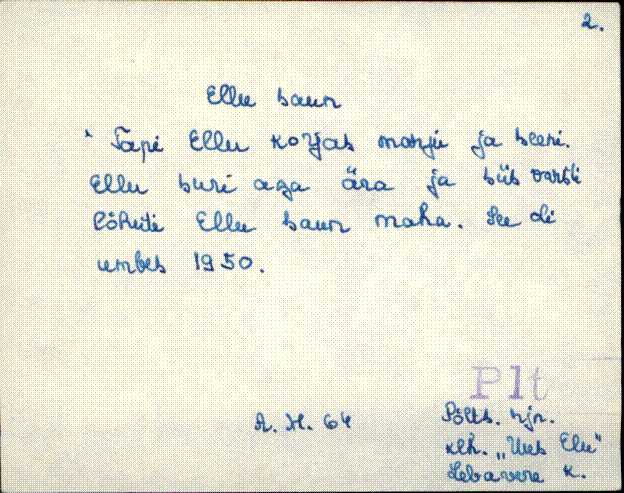 2.
Ellu saun
Tapi Ellu korjas marju ja seeni.
Ellu suri aga ära ja siis varsti
lõhuti Ellu saun maha. See oli
umbes 1950.
Plt
A. H. 64
Põlts. rjn.
klh. „Uus Elu"
Lebavere k.